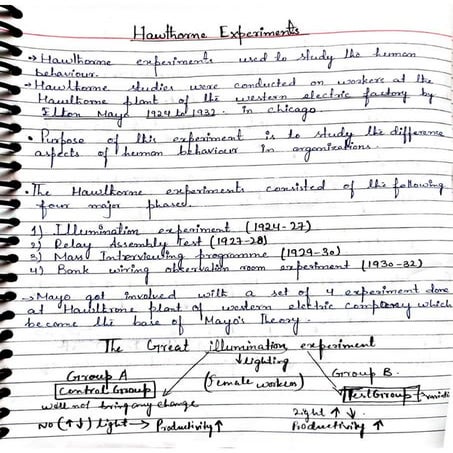 Hawthorne Experiments
→ Hawthorne experiments used to study the human
behaviour.
→ Hawthorne studies were conducted on workers at the
Hawthorne plant of the western electric factory by
Elton Mayo 1924 to 1932. in chicago
• Purpose of this experiment is to study the difference
aspects of human behaviour in organizations.
• The Hawthorne experiments consisted of the following
four major phases.
1) Illumination experiment (1924-27)
2) Relay Assembly Test (1927-28)
3) Mass Interviewing programme (1929-30)
4) Bank wiring observation room experiment (1930-32)
→ Mayo got involved with a set of 4 experiment done
at Hawthorne plant of western electric company which
become the base of Mayo's Theory.
The Great illumination experiment
↓ lighting
(Female workers)
Group A
Central Group
will not bring any change
No (↑↓) light → Productivity ↑
Group B.
Test Group →
Light ↑ ↓
Productivity ↑